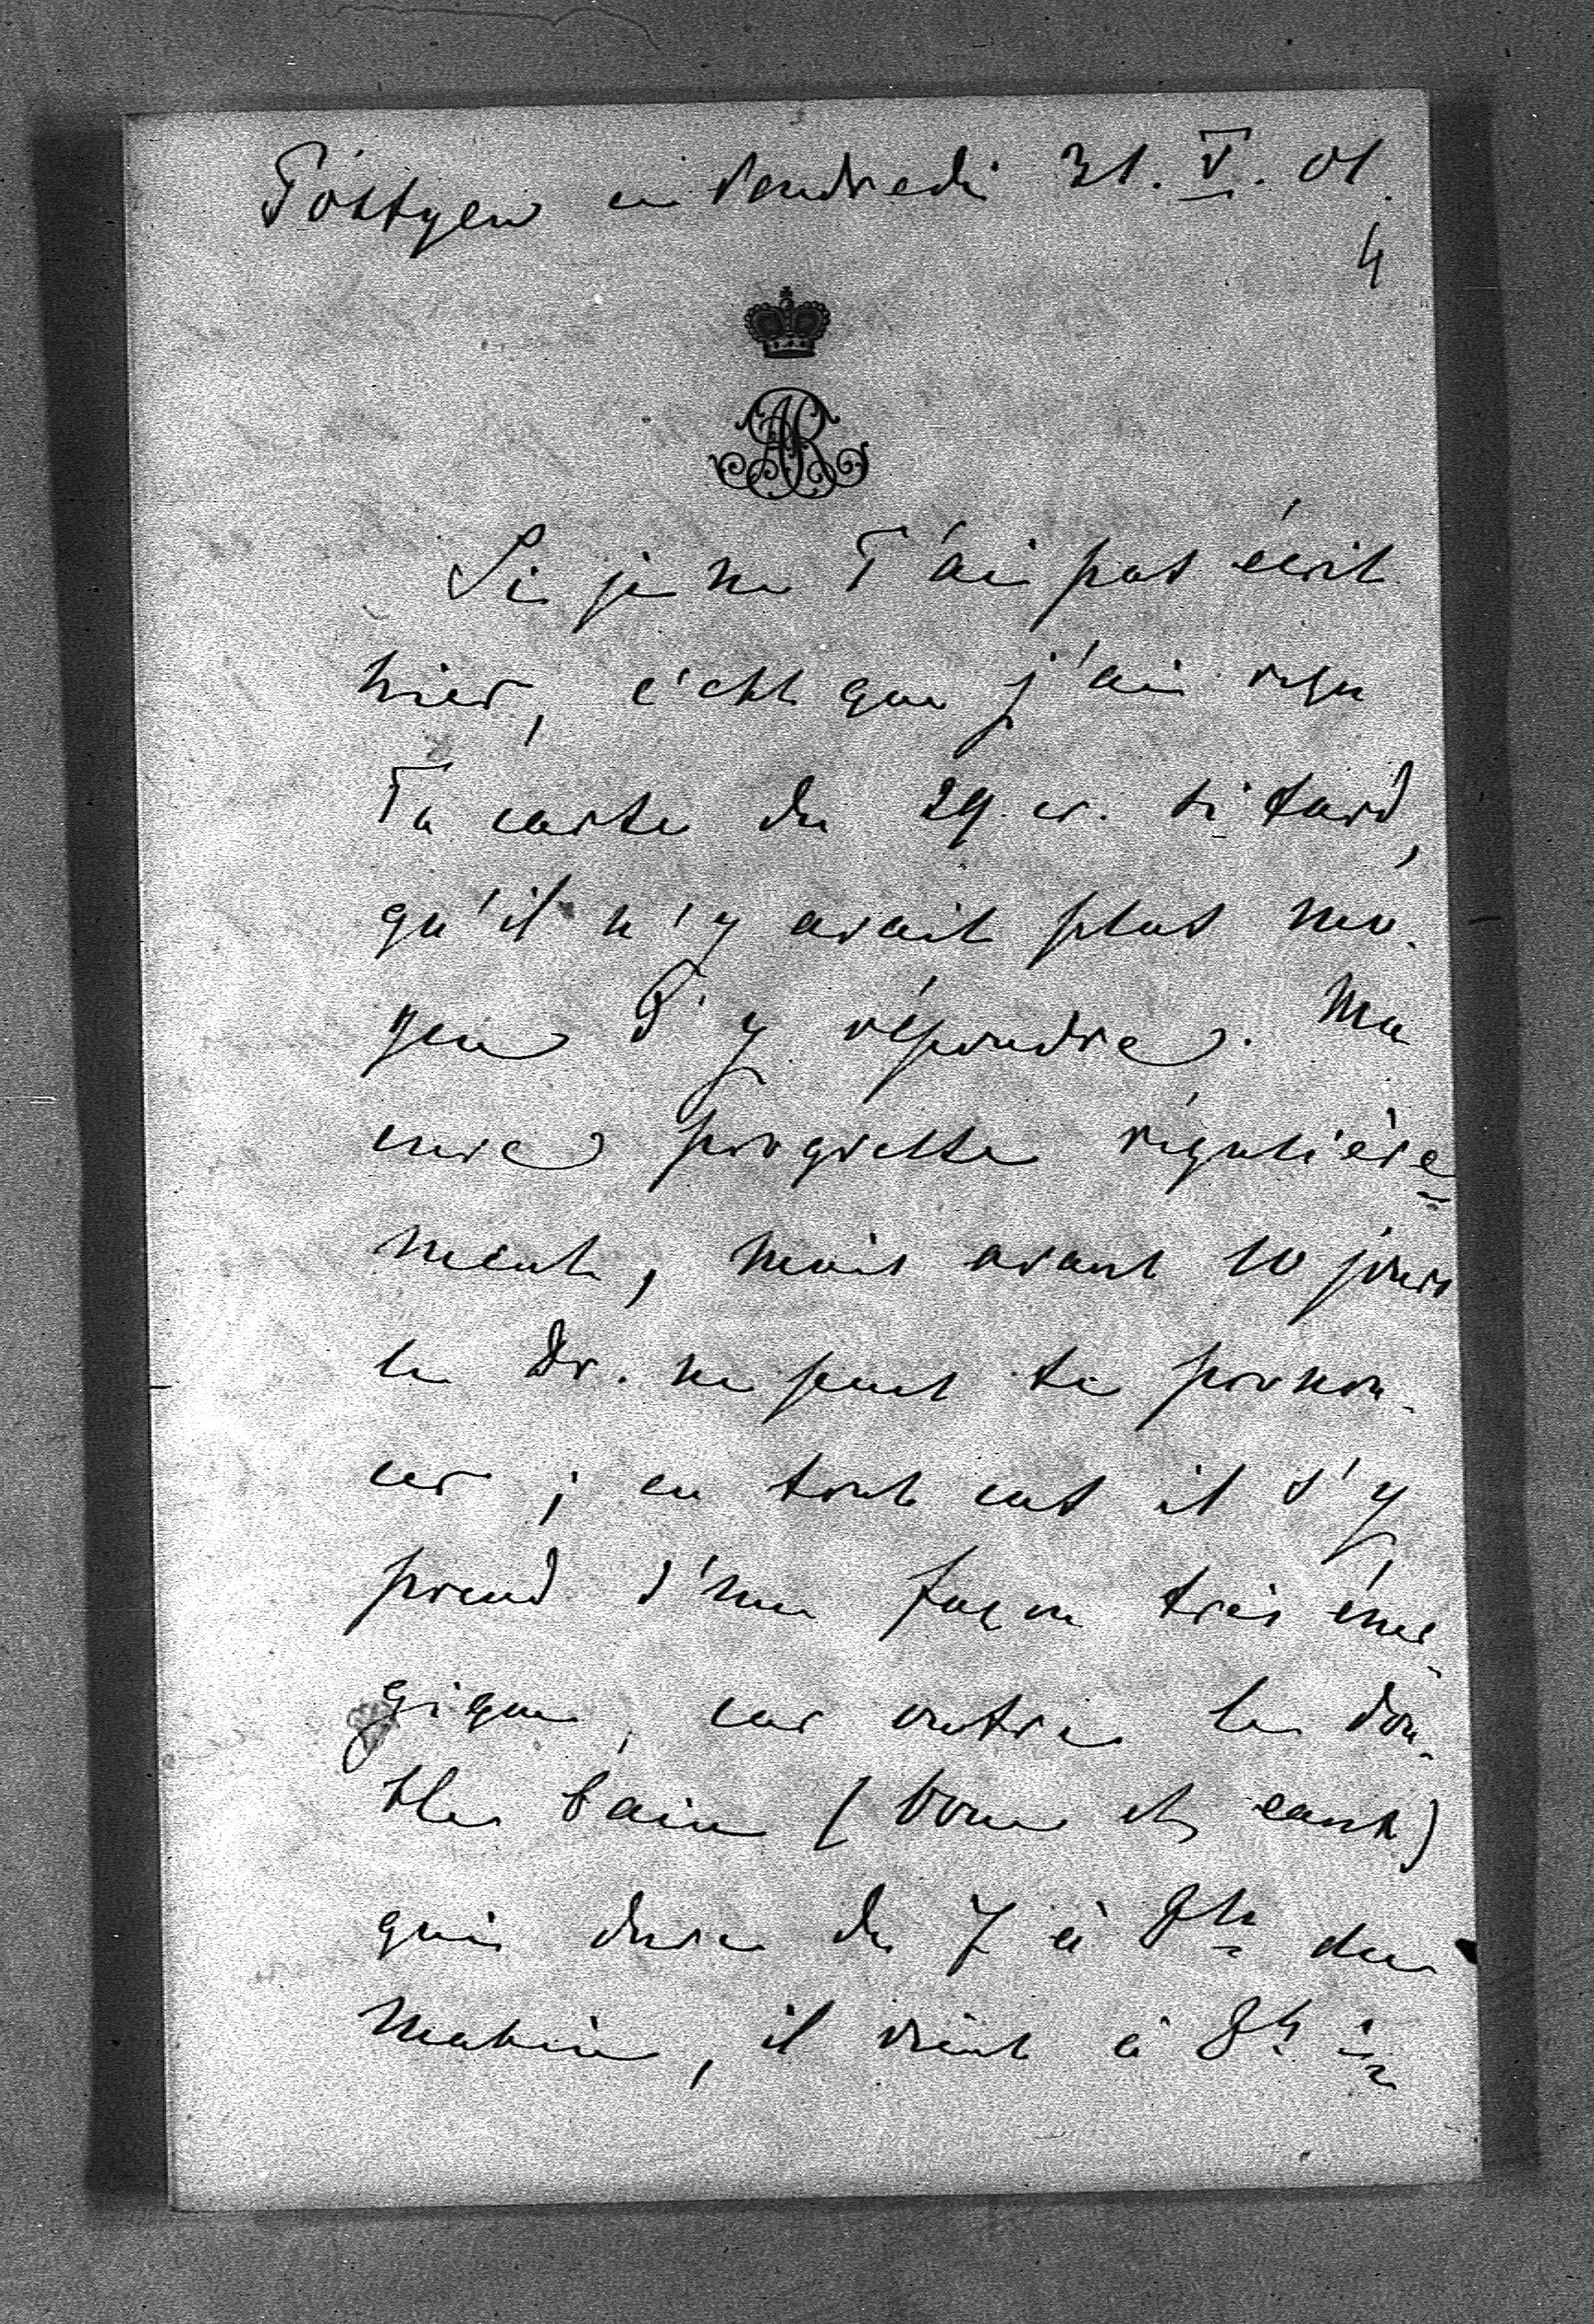 Töstyen ce Vendredi 31. V. 01.
4
AR
Si je ne T'ai pas écrit
hier, c'est que j'ai reçu
Ta carte du 29. cr. si tard,
qu'il n'y avait plus mo-
yen d'y répondre. Ma
cure progresse régulière-
ment, mais avant 10 jours
le Dr. ne peut se pronon-
cer; en tout cas il s'y
prend d'une façon très éner-
gique, car outre le dou-
ble bain (boue et eaux)
qui dure de 7 à 8h du
matin, il vient à 8h